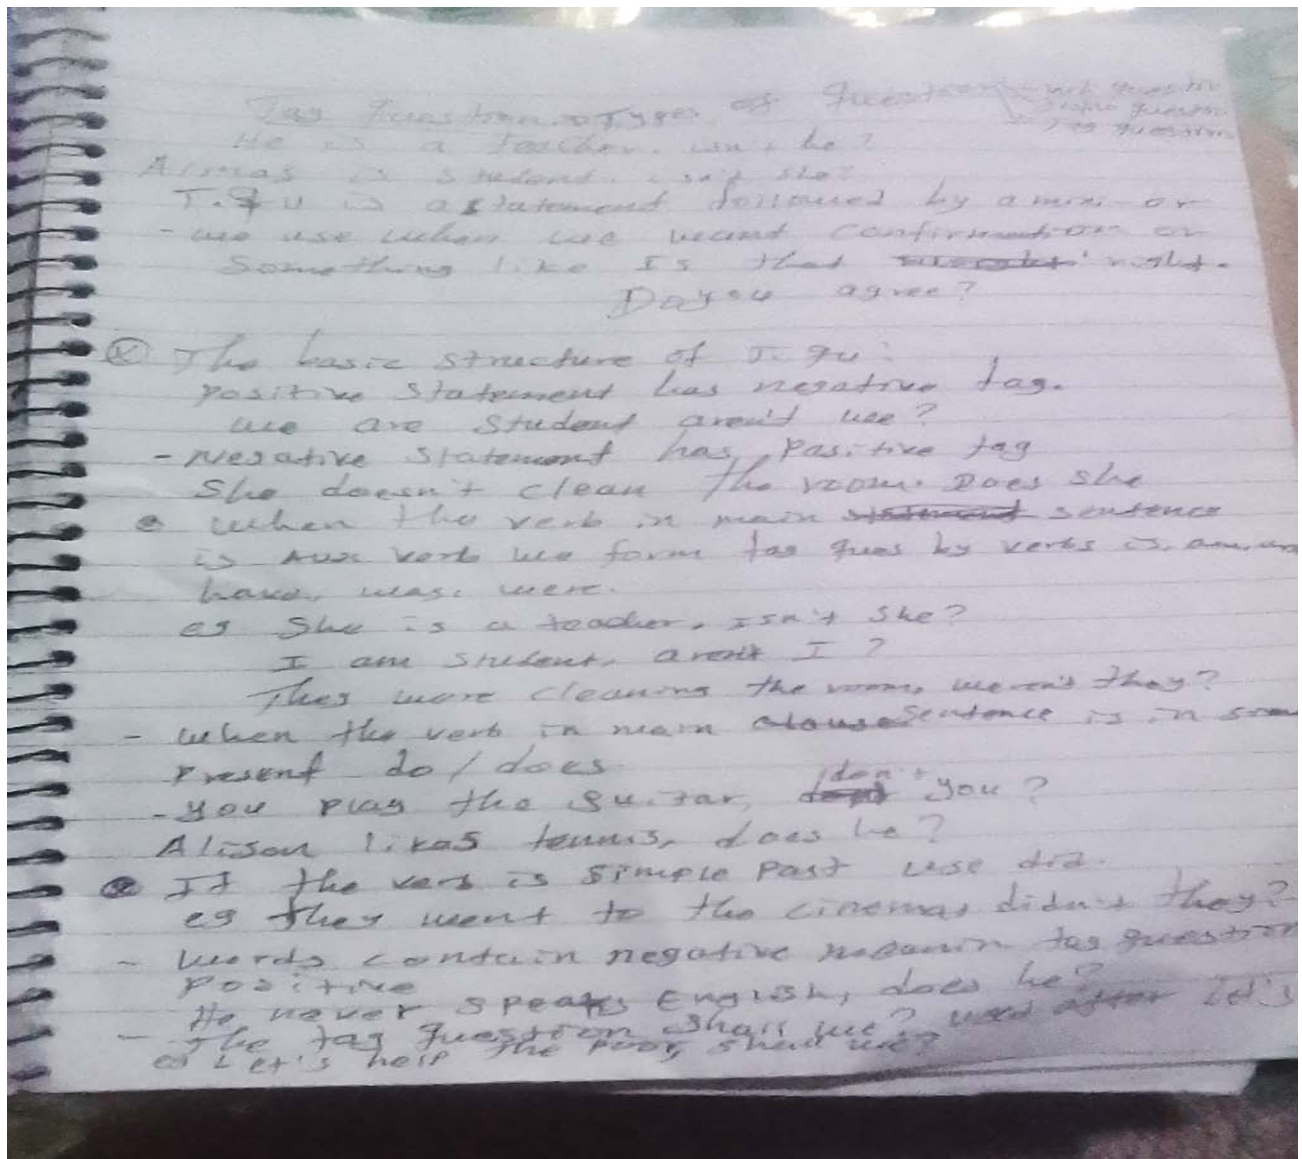 Tag Question → Types of Question
wh questio
question
question
He is a teacher. isn't he?
Almas is student. isn't she?
T. qu is a statement followed by a mini or
- we use when we want confirmation or
Something like Is that right.
Do you agree?
The basic structure of T. qu:
Positive statement has negative tag.
we are student aren't we?
- Negative statement has Positive tag
She doesn't clean the room. Does she
When the verb in main statement sentence
is Aux verb we form tag ques by verbs is, am,
have, was, were.
eg She is a teacher, isn't she?
I am student, aren't I?
They were cleaning the room, weren't they?
- When the verb in main clause sentence is in
Present do/does.
- You play the guitar, don't you?
Alison likes tennis, does he?
If the verb is simple Past use did.
eg They went to the cinema, didn't they?
- Words contain negative tag question
Positive
He never speaks English, does he?
- The tag question shall we? used after let's
Let's help the poor, shall we?